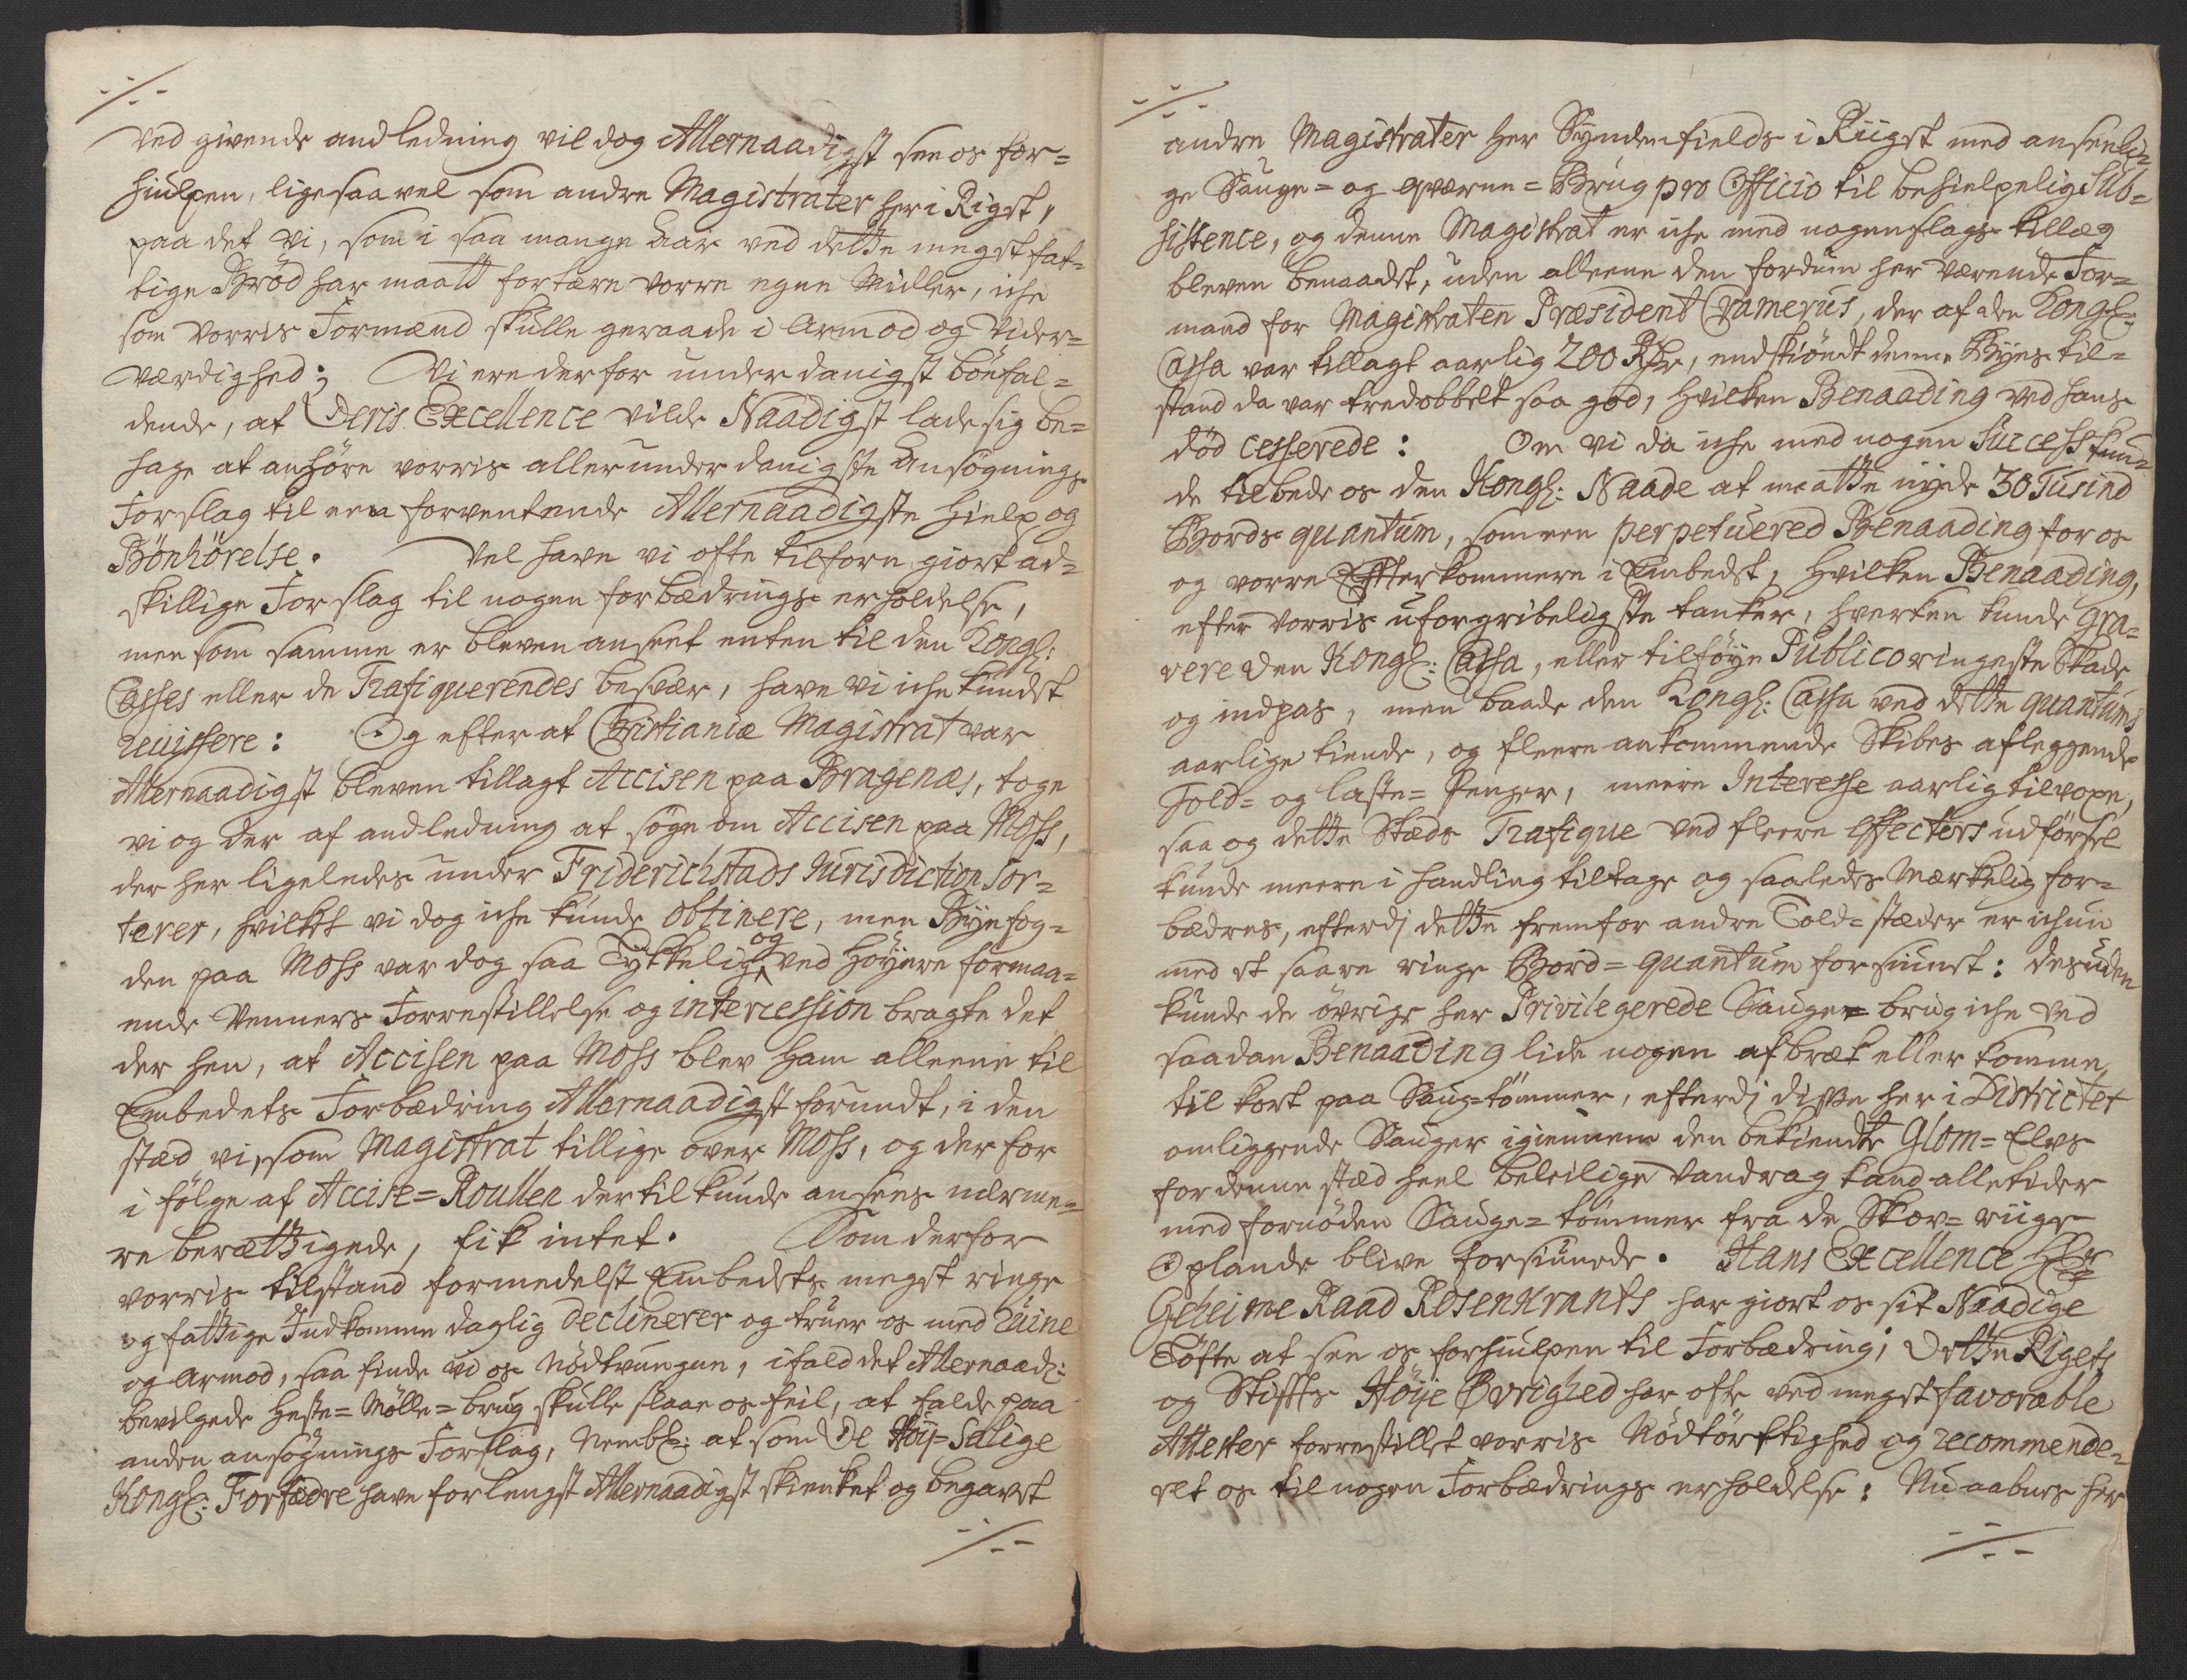 ./.
ved givende andledning vil dog Allernaadigst see os for=
hiulpen, ligesaavel som andre Magistrater her i Riget,
paa det vi, som i saa mange Aar ved dette meget fat=
tige Brød har maatt fortære vorre egne Midler, iche
som vorris Formænd skulle geraade i Armod og vider=
værdighed; Vi ere derfor underdanigst bönfal=
dende, at Deris Excellence vilde Naadigst lade sig be=
hage at anhöre vorris allerunderdanigste Ansögnings
Forslag til een forventende Allernaadigste Hielp og
Bönhörelse. Vel have vi ofte tilforn giort ad=
skillige Forslag til nogen forbædrings erholdelse,
men som samme er bleven anseet enten til den Kongl:
Casses eller de Trafiquerendes besvær, have vi iche kundet
reuissere: Og efter at Christianiæ Magistrat var
Allernaadigst bleven tillagt Accisen paa Bragenæs, toge
vi og der af andledning at söge om Accisen paa Moss,
der her ligeledes under Friderichstads Jurisdiction sor=
terer, hvilket vi dog iche kunde obtinere, men Byefog=
den paa Moss var dog saa Lykkelig og ved Höyere formaa=
ende Venners Forrestillelse og intercession bragte det
der hen, at Accisen paa Moss blev ham alleene til
Embedets Forbædring Allernaadigst forundt, i den
stæd vi, som Magistrat tillige over Moss, og der for
i fölge af Accise=Roullen dertil kunde ansees nærme=
re berættigede, fik intet. Som derfor
vorris tilstand formedelst Embedets meget ringe
og fattige Indkomme daglig declinerer og truer os med ruine
og Armod, saa finde vi os nödtvungen, ifald det Allernaad:
bevilgede Heste=Mölle=brug skulle slaae os feil, at falde paa
anden ansögnings Forslag, Nembl: at som De Höy=Salige
Kongl: Forfædre have forlengst Allernaadigst skienket og begavet
./.
./.
andre Magistrater her Syndenfields i Riiget med anseeli=
ge Sauge= og qværne=Brug pro Officio til behielpelig Sub=
sistence, og denne Magistrat er iche med nogenslags tillæg
bleven benaadet, uden alleene den fordum her værende For=
mand for Magistraten Præsident Cramerus, der af den Kongl:
Cassa var tillagt aarlig 200 Rdr, endskiöndt denne Byes til=
stand da var tredobbelt saa god, hvilken Benaading ved hans
död cesserede: Om vi da iche med nogen Success kun=
de tilbede os den Kongl: Naade at maatte nyde 30 Tusind
Bords quantum, som een perpetuered Benaading for os
og vorre Efterkommere i Embedet, hvilken Benaading,
efter vorris uforgribeligste tanker, hverken kunde gra=
vere den Kongl: Cassa, eller tilföye Publico ringeste Skade
og indpas, men baade den Kongl: Cassa ved dette quantums
aarlige tiende, og fleere ankommende Skibes afleggende
Told= og laste=Penger, meere Interesse aarlig tilvoxe,
saa og dette Stæds Trafique ved fleere effecters udförsel
kunde meere i handling tiltage og saaledes Mærkelig for=
bædres, efterdj dette fremfor andre Told=stæder er ichun
med et saare ringe Bord=quantum forsiunet: desuden
kunde de övrige her Privilegerede Sauge=brug iche ved
saadan Benaading lide nogen afbræk eller komme
til kort paa Saug=tömmer, efterdj disse her i Districtet
omliggende Sauger igiennem den bekiendte Glom=Elvs
for denne stæd heel beleilige Vandrag kand alletider
med fornöden Sauge=tömmer fra de Skov=riige
Oplande blive forsiunede. Hans Excellence Hr
Geheime Raad Rosenkrants har giort os sit Naadige
Löfte at see os forhiulpen til Forbædring; Dette Rigets
og Stifts Höije Øvrighed har ofte ved meget favorable
Attester forrestillet vorris Nödtörftighed og recommende=
ret os til nogen Forbædrings erholdelse: Nu aabnes her
./.